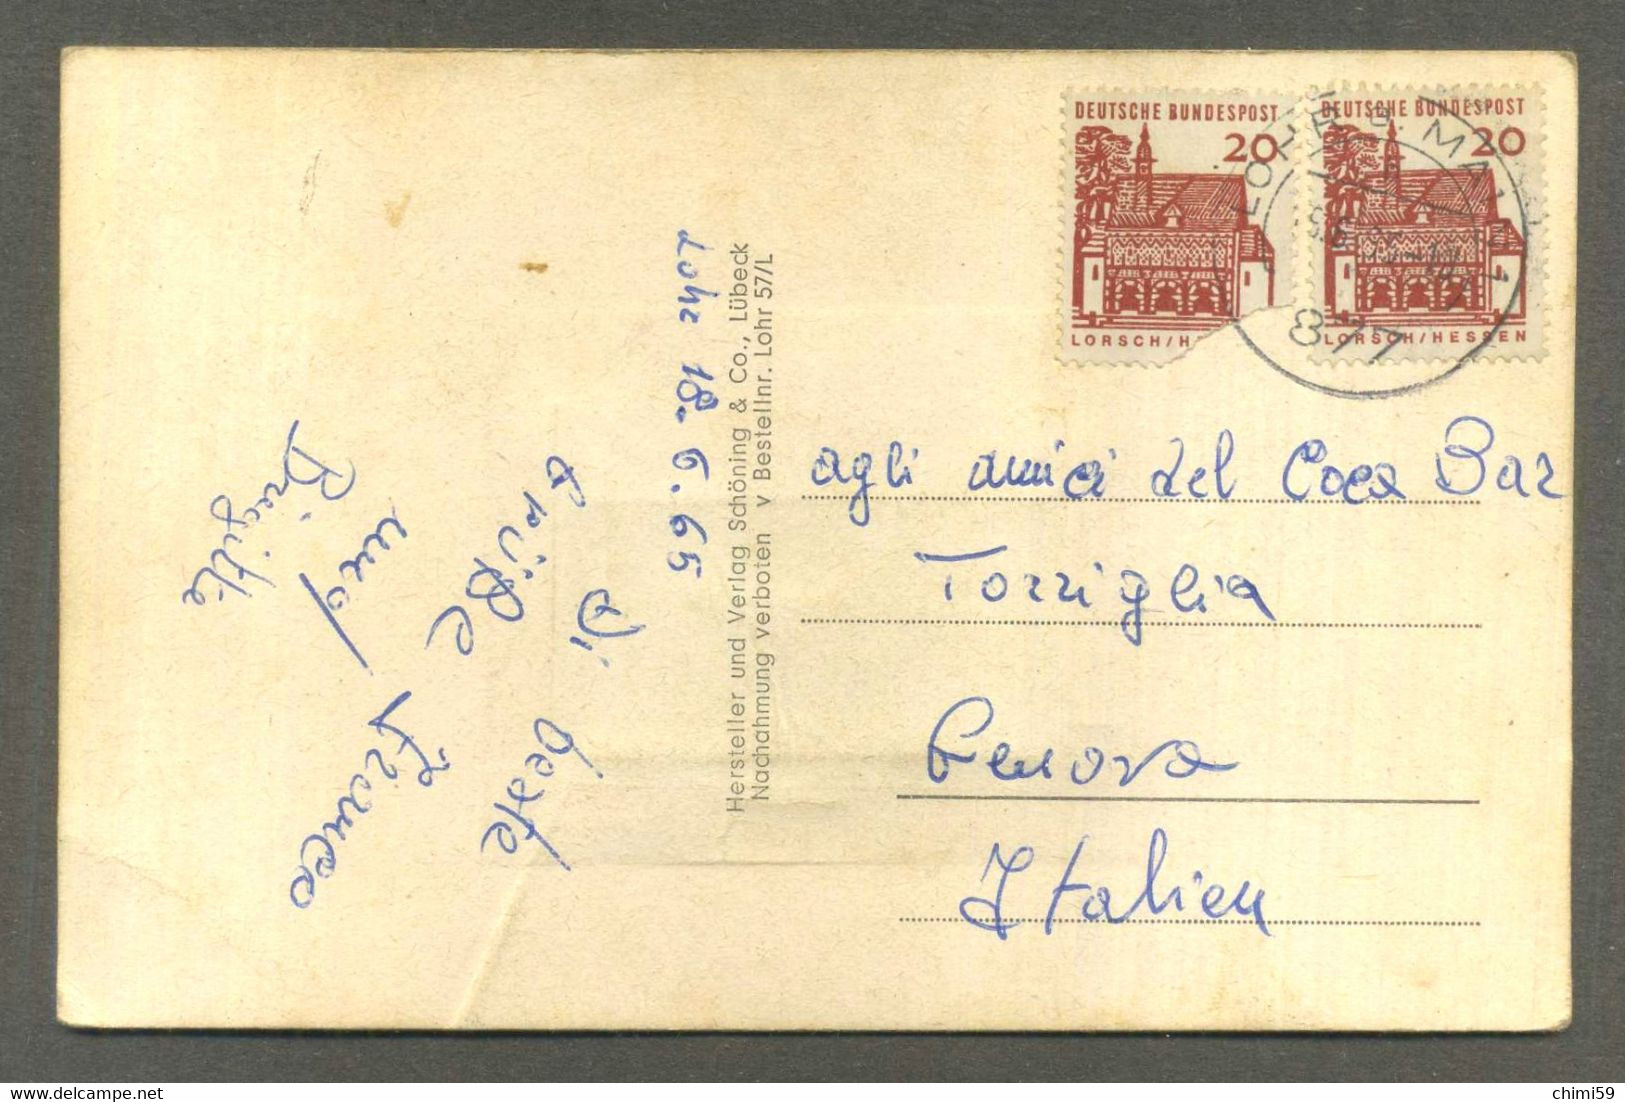 DEUTSCHE BUNDESPOST
20
LORSCH/HE
DEUTSCHE BUNDESPOST
20
LORSCH/HESSEN
LOHR a. MAIN 1
877
Lohr 18.6.65
Di beste
Grüße
Franco
und
Brigitte
Hersteller und Verlag Schöning & Co., Lübeck
Nachahmung verboten v Bestellnr. Lohr 57/L
agli amici del Coca Bar
Torriglia
Genova
Italien
chimi59